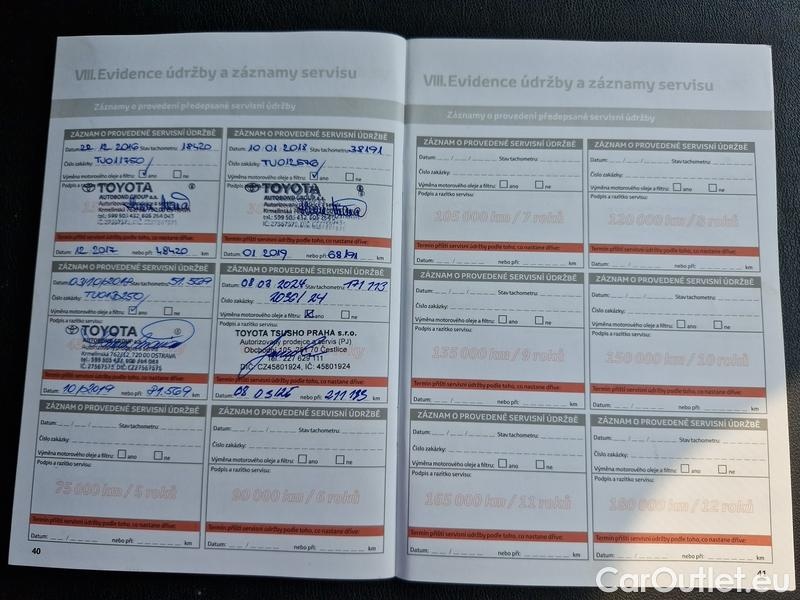 VIII. Evidence údržby a záznamy servisu
Záznamy o provedení předepsané servisní údržby
ZÁZNAM O PROVEDENÉ SERVISNÍ ÚDRŽBĚ
Datum: 22 12 2016 Stav tachometru: 18420
Číslo zakázky: TU011750
Výměna motorového oleje a filtru: ano ne
Podpis a
TOYOTA
AUTOBOND GROUP a.s.
Krmelínská
Termín příští servisní údržby podle toho, co nastane dříve:
Datum: 12 2017 nebo při: 48420 km
ZÁZNAM O PROVEDENÉ SERVISNÍ ÚDRŽBĚ
Datum: 10 01 2018 Stav tachometru: 38191
Číslo zakázky: TU012576
Výměna motorového oleje a filtru: ano ne
Podpis a
TOYOTA
AUTOBOND GROUP a.s.
Krmelínská
Termín příští servisní údržby podle toho, co nastane dříve:
Datum: 01 2019 nebo při: 68191 km
ZÁZNAM O PROVEDENÉ SERVISNÍ ÚDRŽBĚ
Datum: Stav tachometru: 51.569
Číslo zakázky:
Výměna motorového oleje a filtru: ano ne
Podpis a razítko servisu:
TOYOTA
Krmelínská 762/12, 720 00 OSTRAVA
Termín příští servisní údržby podle toho, co nastane dříve:
Datum: 10/2019 nebo při: 71.569 km
ZÁZNAM O PROVEDENÉ SERVISNÍ ÚDRŽBĚ
Datum: 08 03 2024 Stav tachometru: 171 113
Číslo zakázky:
Výměna motorového oleje a filtru: ano ne
Podpis a razítko servisu:
TOYOTA TSUSHO PRAHA s.r.o.
Autorizovaný prodejce a servis (PJ)
Obchodní 105, 251 70 Čestlice
Tel.: 227 629 111
DIČ: CZ45801924, IČ: 45801924
Termín příští servisní údržby podle toho, co nastane dříve:
Datum: 08 nebo při: km
ZÁZNAM O PROVEDENÉ SERVISNÍ ÚDRŽBĚ
Datum: __ / __ / ____ Stav tachometru:
Číslo zakázky:
Výměna motorového oleje a filtru: ano ne
Podpis a razítko servisu:
75 000 km / 5 roků
Termín příští servisní údržby podle toho, co nastane dříve:
Datum: __ / __ / ____ nebo při: km
ZÁZNAM O PROVEDENÉ SERVISNÍ ÚDRŽBĚ
Datum: __ / __ / ____ Stav tachometru:
Číslo zakázky:
Výměna motorového oleje a filtru: ano ne
Podpis a razítko servisu:
90 000 km / 6 roků
Termín příští servisní údržby podle toho, co nastane dříve:
Datum: __ / __ / ____ nebo při: km
40
VIII. Evidence údržby a záznamy servisu
Záznamy o provedení předepsané servisní údržby
ZÁZNAM O PROVEDENÉ SERVISNÍ ÚDRŽBĚ
Datum: __ / __ / ____ Stav tachometru:
Číslo zakázky:
Výměna motorového oleje a filtru: ano ne
Podpis a razítko servisu:
105 000 km / 7 roků
Termín příští servisní údržby podle toho, co nastane dříve:
Datum: __ / __ / ____ nebo při: km
ZÁZNAM O PROVEDENÉ SERVISNÍ ÚDRŽBĚ
Datum: __ / __ / ____ Stav tachometru:
Číslo zakázky:
Výměna motorového oleje a filtru: ano ne
Podpis a razítko servisu:
120 000 km / 8 roků
Termín příští servisní údržby podle toho, co nastane dříve:
Datum: __ / __ / ____ nebo při: km
ZÁZNAM O PROVEDENÉ SERVISNÍ ÚDRŽBĚ
Datum: __ / __ / ____ Stav tachometru:
Číslo zakázky:
Výměna motorového oleje a filtru: ano ne
Podpis a razítko servisu:
135 000 km / 9 roků
Termín příští servisní údržby podle toho, co nastane dříve:
Datum: __ / __ / ____ nebo při: km
ZÁZNAM O PROVEDENÉ SERVISNÍ ÚDRŽBĚ
Datum: __ / __ / ____ Stav tachometru:
Číslo zakázky:
Výměna motorového oleje a filtru: ano ne
Podpis a razítko servisu:
150 000 km / 10 roků
Termín příští servisní údržby podle toho, co nastane dříve:
Datum: __ / __ / ____ nebo při: km
ZÁZNAM O PROVEDENÉ SERVISNÍ ÚDRŽBĚ
Datum: __ / __ / ____ Stav tachometru:
Číslo zakázky:
Výměna motorového oleje a filtru: ano ne
Podpis a razítko servisu:
165 000 km / 11 roků
Termín příští servisní údržby podle toho, co nastane dříve:
Datum: __ / __ / ____ nebo při: km
ZÁZNAM O PROVEDENÉ SERVISNÍ ÚDRŽBĚ
Datum: __ / __ / ____ Stav tachometru:
Číslo zakázky:
Výměna motorového oleje a filtru: ano ne
Podpis a razítko servisu:
180 000 km / 12 roků
Termín příští servisní údržby podle toho, co nastane dříve:
Datum: __ / __ / ____ nebo při: km
41
CarOutlet.eu